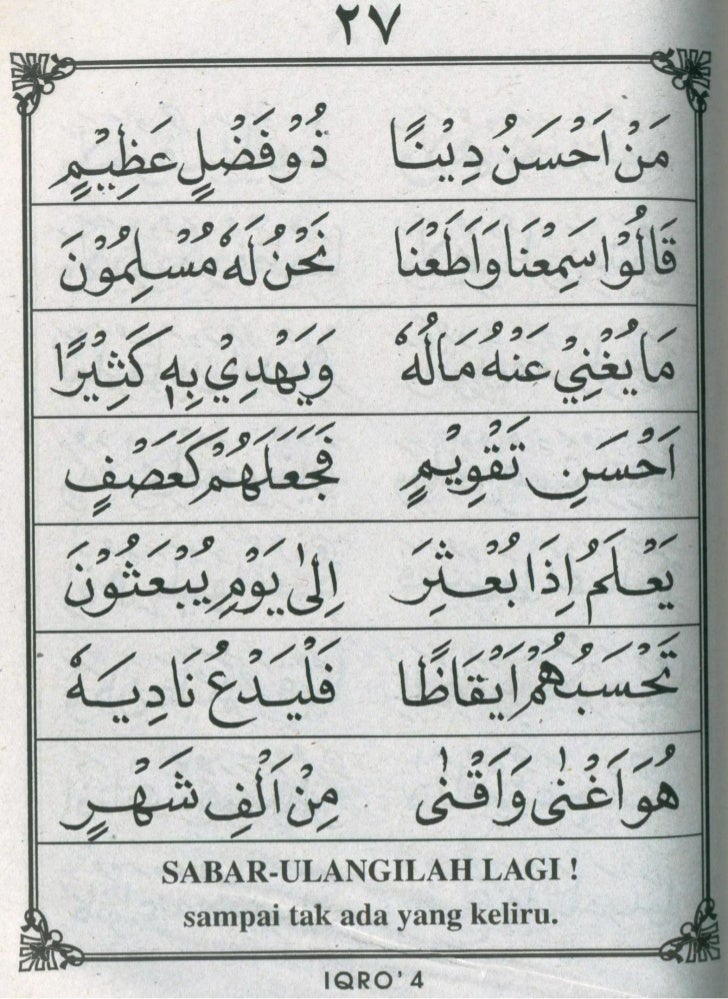 ٢٧
مَنْ اَحْسَنُ دِيْنًا ذُوْ فَضْلٍ عَظِيْمٍ
قَالُوْا سَمِعْنَا وَاَطَعْنَا نَحْنُ لَهٗ مُسْلِمُوْنَ
مَا يُغْنِيْ عَنْهُ مَالُهٗ وَيَهْدِيْ بِهٖ كَثِيْرًا
اَحْسَنِ تَقْوِيْمٍ فَجَعَلَهُمْ كَعَصْفٍ
يَعْلَمُ اِذَا بُعْثِرَ اِلٰى يَوْمِ يُبْعَثُوْنَ
تَحْسَبُهُمْ اَيْقَاظًا فَلْيَدْعُ نَادِيَهٗ
هُوَ اَغْنٰى وَاَقْنٰى مِنْ اَلْفِ شَهْرٍ
SABAR-ULANGILAH LAGI !
sampai tak ada yang keliru.
IQRO' 4